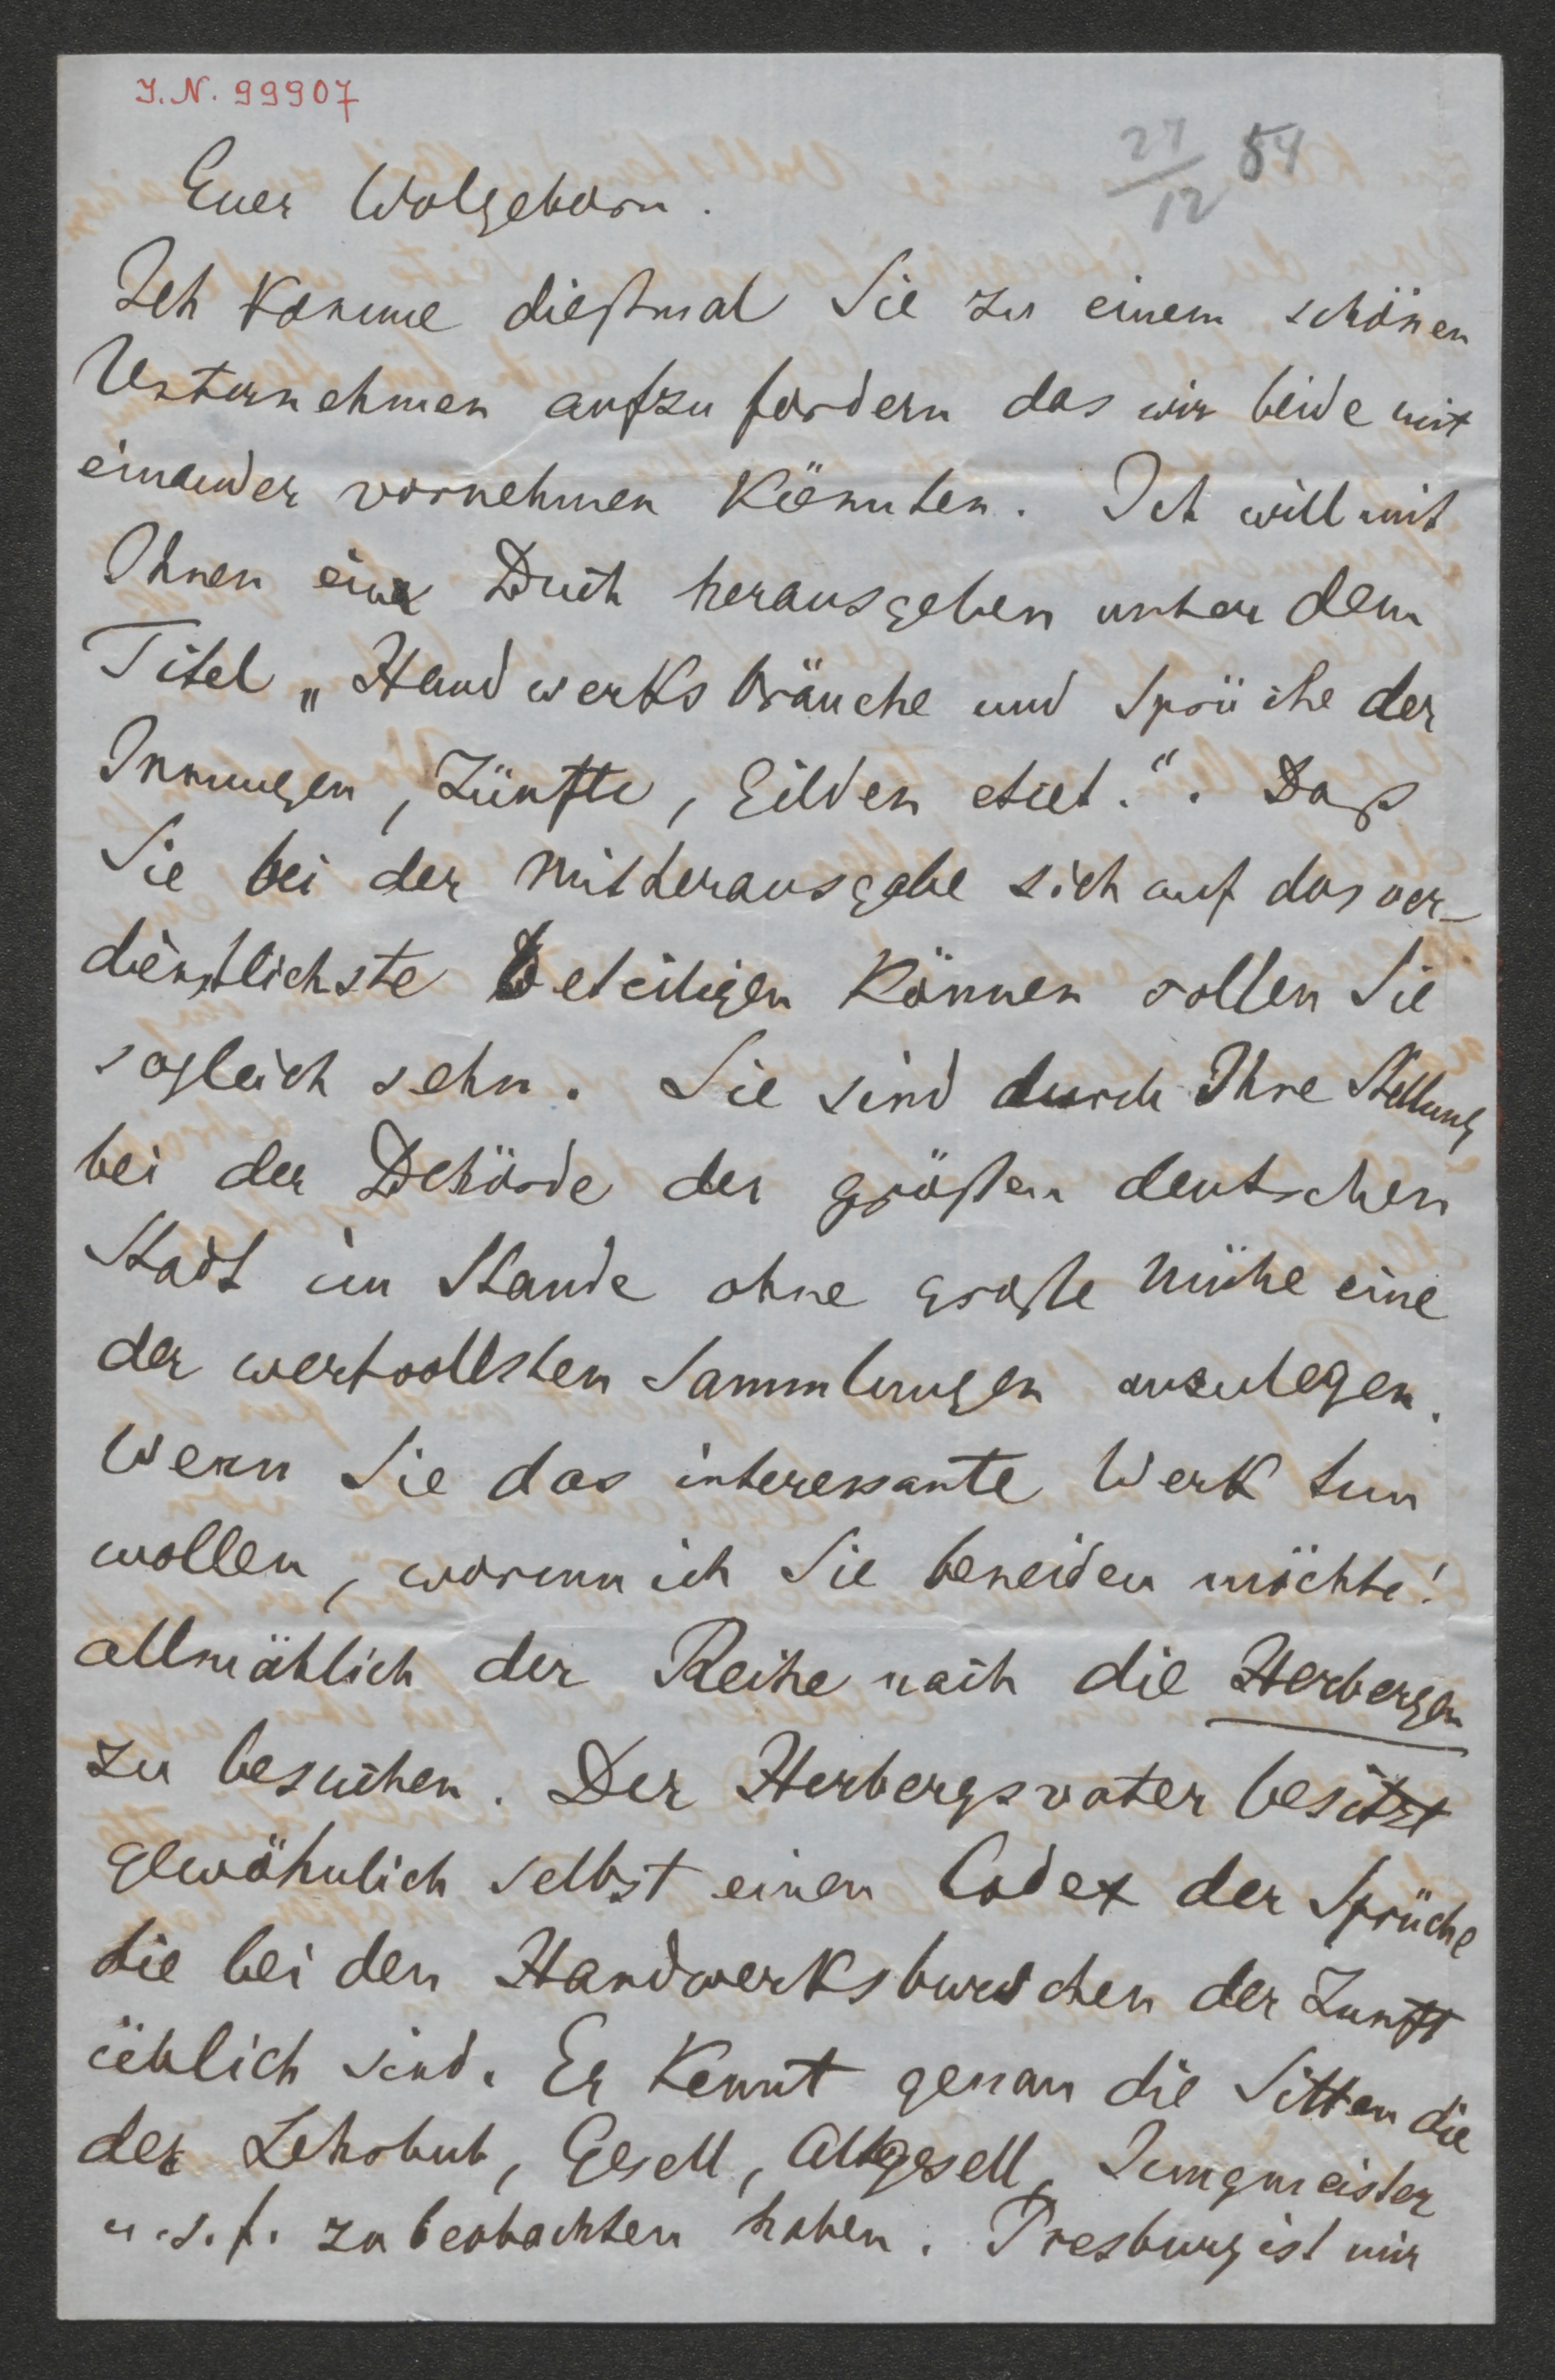 J.N. 99907
27/12 54
Euer Wolgeborn.
Ich komme dießmal Sie zu einem schönen
Unternehmen aufzufordern das wir beide mit
einander vornehmen könnten. Ich will mit
Ihnen ein Buch herausgeben unter dem
Titel „Handwerksbräuche und Sprüche der
Innungen, Zünfte, Gilden etect.“. Daß
Sie bei der Mitherausgabe sich auf das ver-
dienstlichste beteiligen können sollen Sie
sogleich sehn. Sie sind durch Ihre Stellung
bei der Behörde der größten deutschen
Stadt im Stande ohne große Mühe eine
der wertvollsten Sammlungen anzulegen.
Wenn Sie das interessante Werk tun
wollen, worum ich Sie beneiden möchte!
allmählich der Reihe nach die Herbergen
zu besuchen. Der Herbergsvater besitzt
gewöhnlich selbst einen Codex der Sprüche
die bei den Handwerksburschen der Zunft
üblich sind. Er kennt genau die Sitten die
der Lehrbub, Gesell, Altgesell, Jungmeister
u.s.f. zu beobachten haben. Presburg ist mir